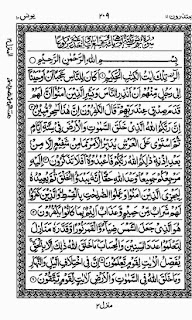 یعتذرون ۲۰۹ یونس
بِسْمِ اللّٰهِ الرَّحْمٰنِ الرَّحِيْمِ
الٓرٰ تِلْكَ اٰيٰتُ الْكِتٰبِ الْحَكِيْمِ اَكَانَ لِلنَّاسِ عَجَبًا اَنْ اَوْحَيْنَآ
اِلٰى رَجُلٍ مِّنْهُمْ اَنْ اَنْذِرِ النَّاسَ وَبَشِّرِ الَّذِيْنَ اٰمَنُوْٓا اَنَّ لَهُمْ
قَدَمَ صِدْقٍ عِنْدَ رَبِّهِمْ قَالَ الْكٰفِرُوْنَ اِنَّ هٰذَا لَسٰحِرٌ مُّبِيْنٌ
اِنَّ رَبَّكُمُ اللّٰهُ الَّذِيْ خَلَقَ السَّمٰوٰتِ وَالْاَرْضَ فِيْ سِتَّةِ اَيَّامٍ
ثُمَّ اسْتَوٰى عَلَى الْعَرْشِ يُدَبِّرُ الْاَمْرَ مَا مِنْ شَفِيْعٍ اِلَّا مِنْۢ
بَعْدِ اِذْنِهٖ ذٰلِكُمُ اللّٰهُ رَبُّكُمْ فَاعْبُدُوْهُ اَفَلَا تَذَكَّرُوْنَ اِلَيْهِ
مَرْجِعُكُمْ جَمِيْعًا وَعْدَ اللّٰهِ حَقًّا اِنَّهٗ يَبْدَؤُا الْخَلْقَ ثُمَّ يُعِيْدُهٗ
لِيَجْزِيَ الَّذِيْنَ اٰمَنُوْا وَعَمِلُوا الصّٰلِحٰتِ بِالْقِسْطِ وَالَّذِيْنَ كَفَرُوْا
لَهُمْ شَرَابٌ مِّنْ حَمِيْمٍ وَّعَذَابٌ اَلِيْمٌۢ بِمَا كَانُوْا يَكْفُرُوْنَ
هُوَ الَّذِيْ جَعَلَ الشَّمْسَ ضِيَآءً وَّالْقَمَرَ نُوْرًا وَّقَدَّرَهٗ مَنَازِلَ
لِتَعْلَمُوْا عَدَدَ السِّنِيْنَ وَالْحِسَابَ مَا خَلَقَ اللّٰهُ ذٰلِكَ اِلَّا بِالْحَقِّ
يُفَصِّلُ الْاٰيٰتِ لِقَوْمٍ يَّعْلَمُوْنَ اِنَّ فِي اخْتِلَافِ الَّيْلِ وَالنَّهَارِ
وَمَا خَلَقَ اللّٰهُ فِي السَّمٰوٰتِ وَالْاَرْضِ لَاٰيٰتٍ لِّقَوْمٍ يَّتَّقُوْنَ
منزل ۳